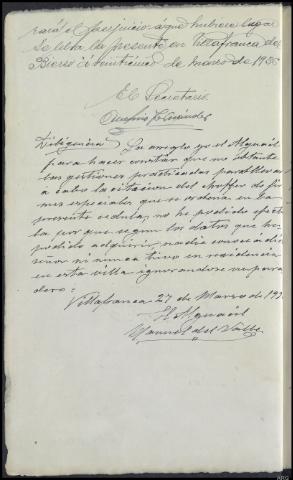 rará el perjuicio a que hubiere lugar
Se libra la presente en Villafranca del
Bierzo a veintiuno de marzo de 193
El Secretario
Fernández
Diligencia La arreglo yo el Alguacil
para hacer constar que no obstante
las gestiones practicadas para llevar
a cabo la citacion del
que se ordena en la
presente cedula, no he podido efectuar
la por que segun los datos que he
podido adquirir, nadie conoce a dicho
señor ni nunca tuvo en residencia
en esta villa ignorandose su para
dero:
Villafranca 27 de Marzo de 193
El Alguacil
Manuel del Valle